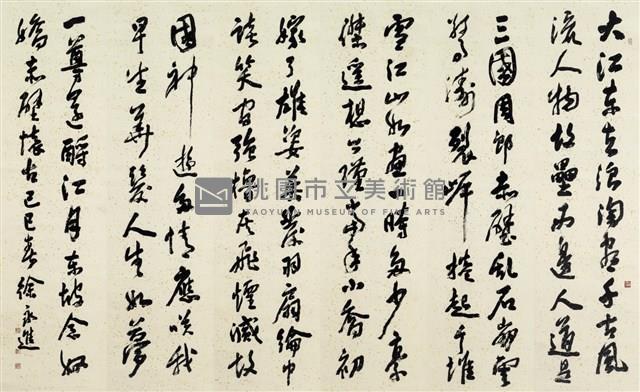 大江东去浪淘盡千古風
流人物故壘西邊人道是
三國周郎赤壁乱石崩雲
驚濤裂岸捲起千堆
雪江山如畫一時多少豪
傑遥想公瑾當年小喬初
嫁了雄姿英發羽扇綸巾
談笑間强擄灰飛煙滅故
國神遊多情應咲我
早生華髮人生如夢
一尊還酹江月东坡念奴
嬌赤壁懷古己巳春徐永進
桃園市立美術館
TAOYUAN MUSEUM OF FINE ARTS